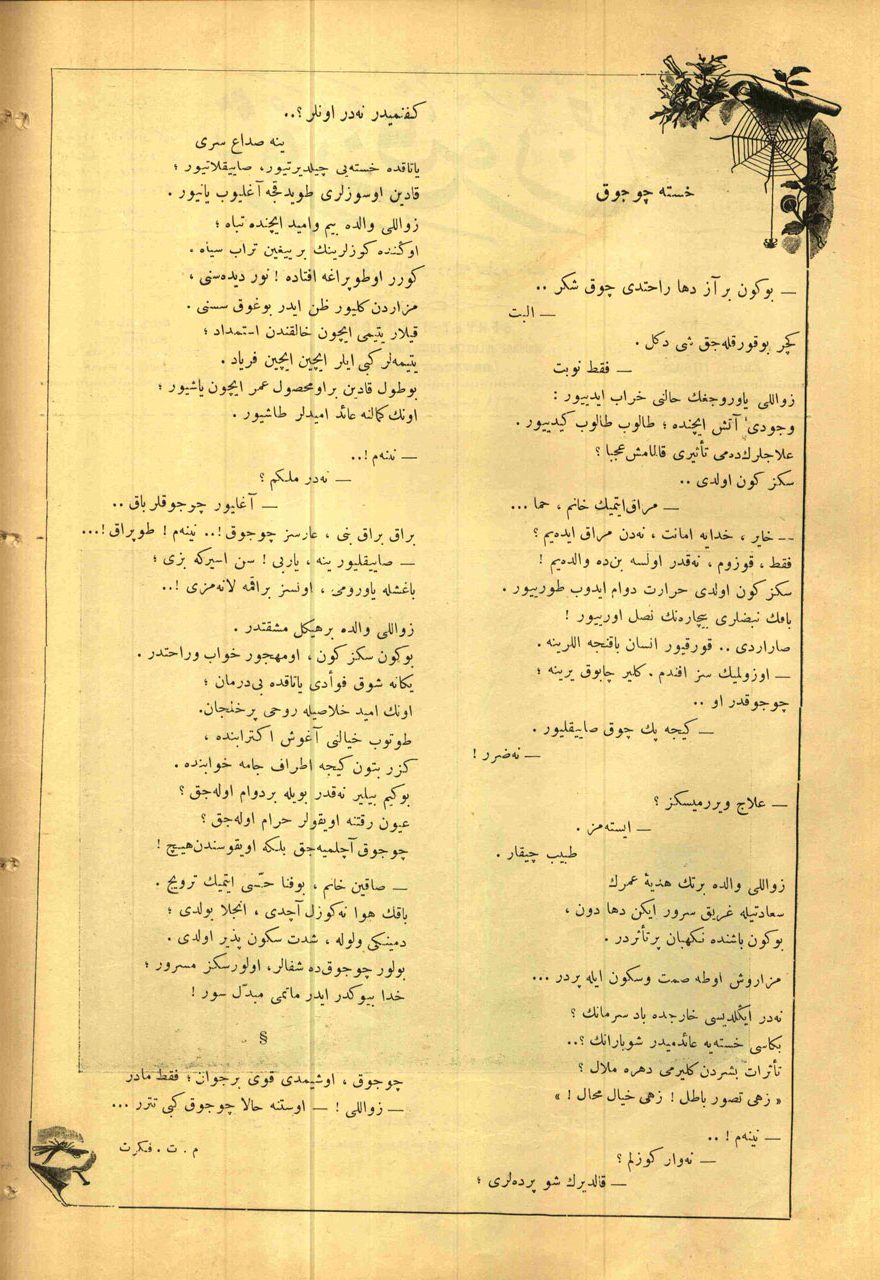 خسته چوجوق
— بوكون بر آز دها راحتدی چوق شكر ..
— البت
كچر بوقورقله‌جق شی دكل .
— فقط نوبت
زواللی یاوروجغك حالنی خراب ایدییور :
وجودی آتش ایچنده ؛ طالوب طالوب كیدییور .
علاجلرك‌ده‌می تأثیری قالمامش عجبا ؟
سكز كون اولدی ..
— مراق ایتمیك خانم ، حما ...
— خایر ، خدایه امانت ، نه‌دن مراق ایده‌یم ؟
فقط ، قوزوم ، نه‌قدر اولسه بن‌ده والده‌یم !
سكز كون اولدی حرارت دوام ایدوب طورییور .
باقك نبضاری بیچاره‌نك نصل اورییور !
صاراردی .. قورقیور انسان باقنجه اللرینه .
— اوزولمیك سز افندم . كلیر چابوق یرینه ؛
چوجوقدر او ..
— كیجه پك چوق صاییقلیور .
— نه‌ضرر !
— علاج ویررمیسكز ؟
— ایسته‌مز .
طبیب چیقار .
زواللی والده برتك هدیهٔ عمرك
سعادتیله غریق سرور ایكن دها دون ،
بوكون باشنده نكهبان پرتأثردر .
مزاروش اوطه صمت وسكون ایله پردر ...
نه‌در ایكلدیسی خارجده باد سرمانك ؟
بكاسی خسته‌یه عائدمیدر شوبارانك ؟..
تأثرات بشردن كلیرمی دهره ملال ؟
« زهی تصور باطل ! زهی خیال محال ! »
— نینه‌م ! ..
— نه‌وار كوزلم ؟
— قالدیرك شو پرده‌لری ؛
كفنمیدر نه‌در اونلر ؟..
ینه صداع سری
یاتاقده خسته‌یی چیلدیرتیور، صاییقلاتیور ؛
قادین اوسوزلری طویدقجه آغلیوب یانیور .
زواللی والده بیم وامید ایچنده تباه ؛
اوڭنده كوزلرینك بر ییغین تراب سیاه .
كورر اوطوپراغه افتاده ! نور دیده‌سنی ،
مزاردن كلیور ظن ایدر بوغوق سسنی .
قیلار یتیمی ایچون خالقندن استمداد ؛
یتیمه‌لر كبی ایلر ایچین ایچین فریاد .
بوطول قادین بر اومحصول عمر ایچون یاشیور ؛
اونك كمالنه عائد امیدلر طاشیور .
— نینه‌م !..
— نه‌در ملكم ؟
— آغلیور چوجوقلر باق ..
براق براق بنی ، عارسز چوجوق !.. نینه‌م ! طوپراق !...
— صاییقلیور ینه ، یاربی ! سن اسیركه بزی ؛
باغشله یاورومی ، اونسز براقمه لانه‌مزی !..
زواللی والده برهیكل مشقتدر .
بوكون سكز كون ، اومهجور خواب وراحتدر .
یكانه شوق فوأدی یاتاقده بی‌درمان ؛
اونك امید خلاصیله روحی پرخلجان.
طوتوب خیالنی آغوش اكترابنده ،
كزر بتون كیجه اطراف جامه خوابنده .
بوكیم بیلیر نه‌قدر بویله بردوام اوله‌جق ؟
عیون رقتنه اویقولر حرام اوله‌جق ؟
چوجوق آچلمیه‌جق بلكه اویقوسندن هیچ !
— صاقین خانم ، بوفنا حسّی ایتمیك ترویج .
باقك هوا نه‌كوزل آچدی ، انجلا بولدی ؛
دمینكی ولوله ، شدت سكون پذیر اولدی .
بولور چوجوق‌ده شفالر، اولورسكز مسرور ؛
خدا بیوكدر ایدر ماتمی مبدّل سور !
§
چوجوق ، اوشیمدی قوی برجوان ؛ فقط مادر
— زواللی ! — اوستنه حالا چوجوق كبی تتر ...
م . ت . فكرت